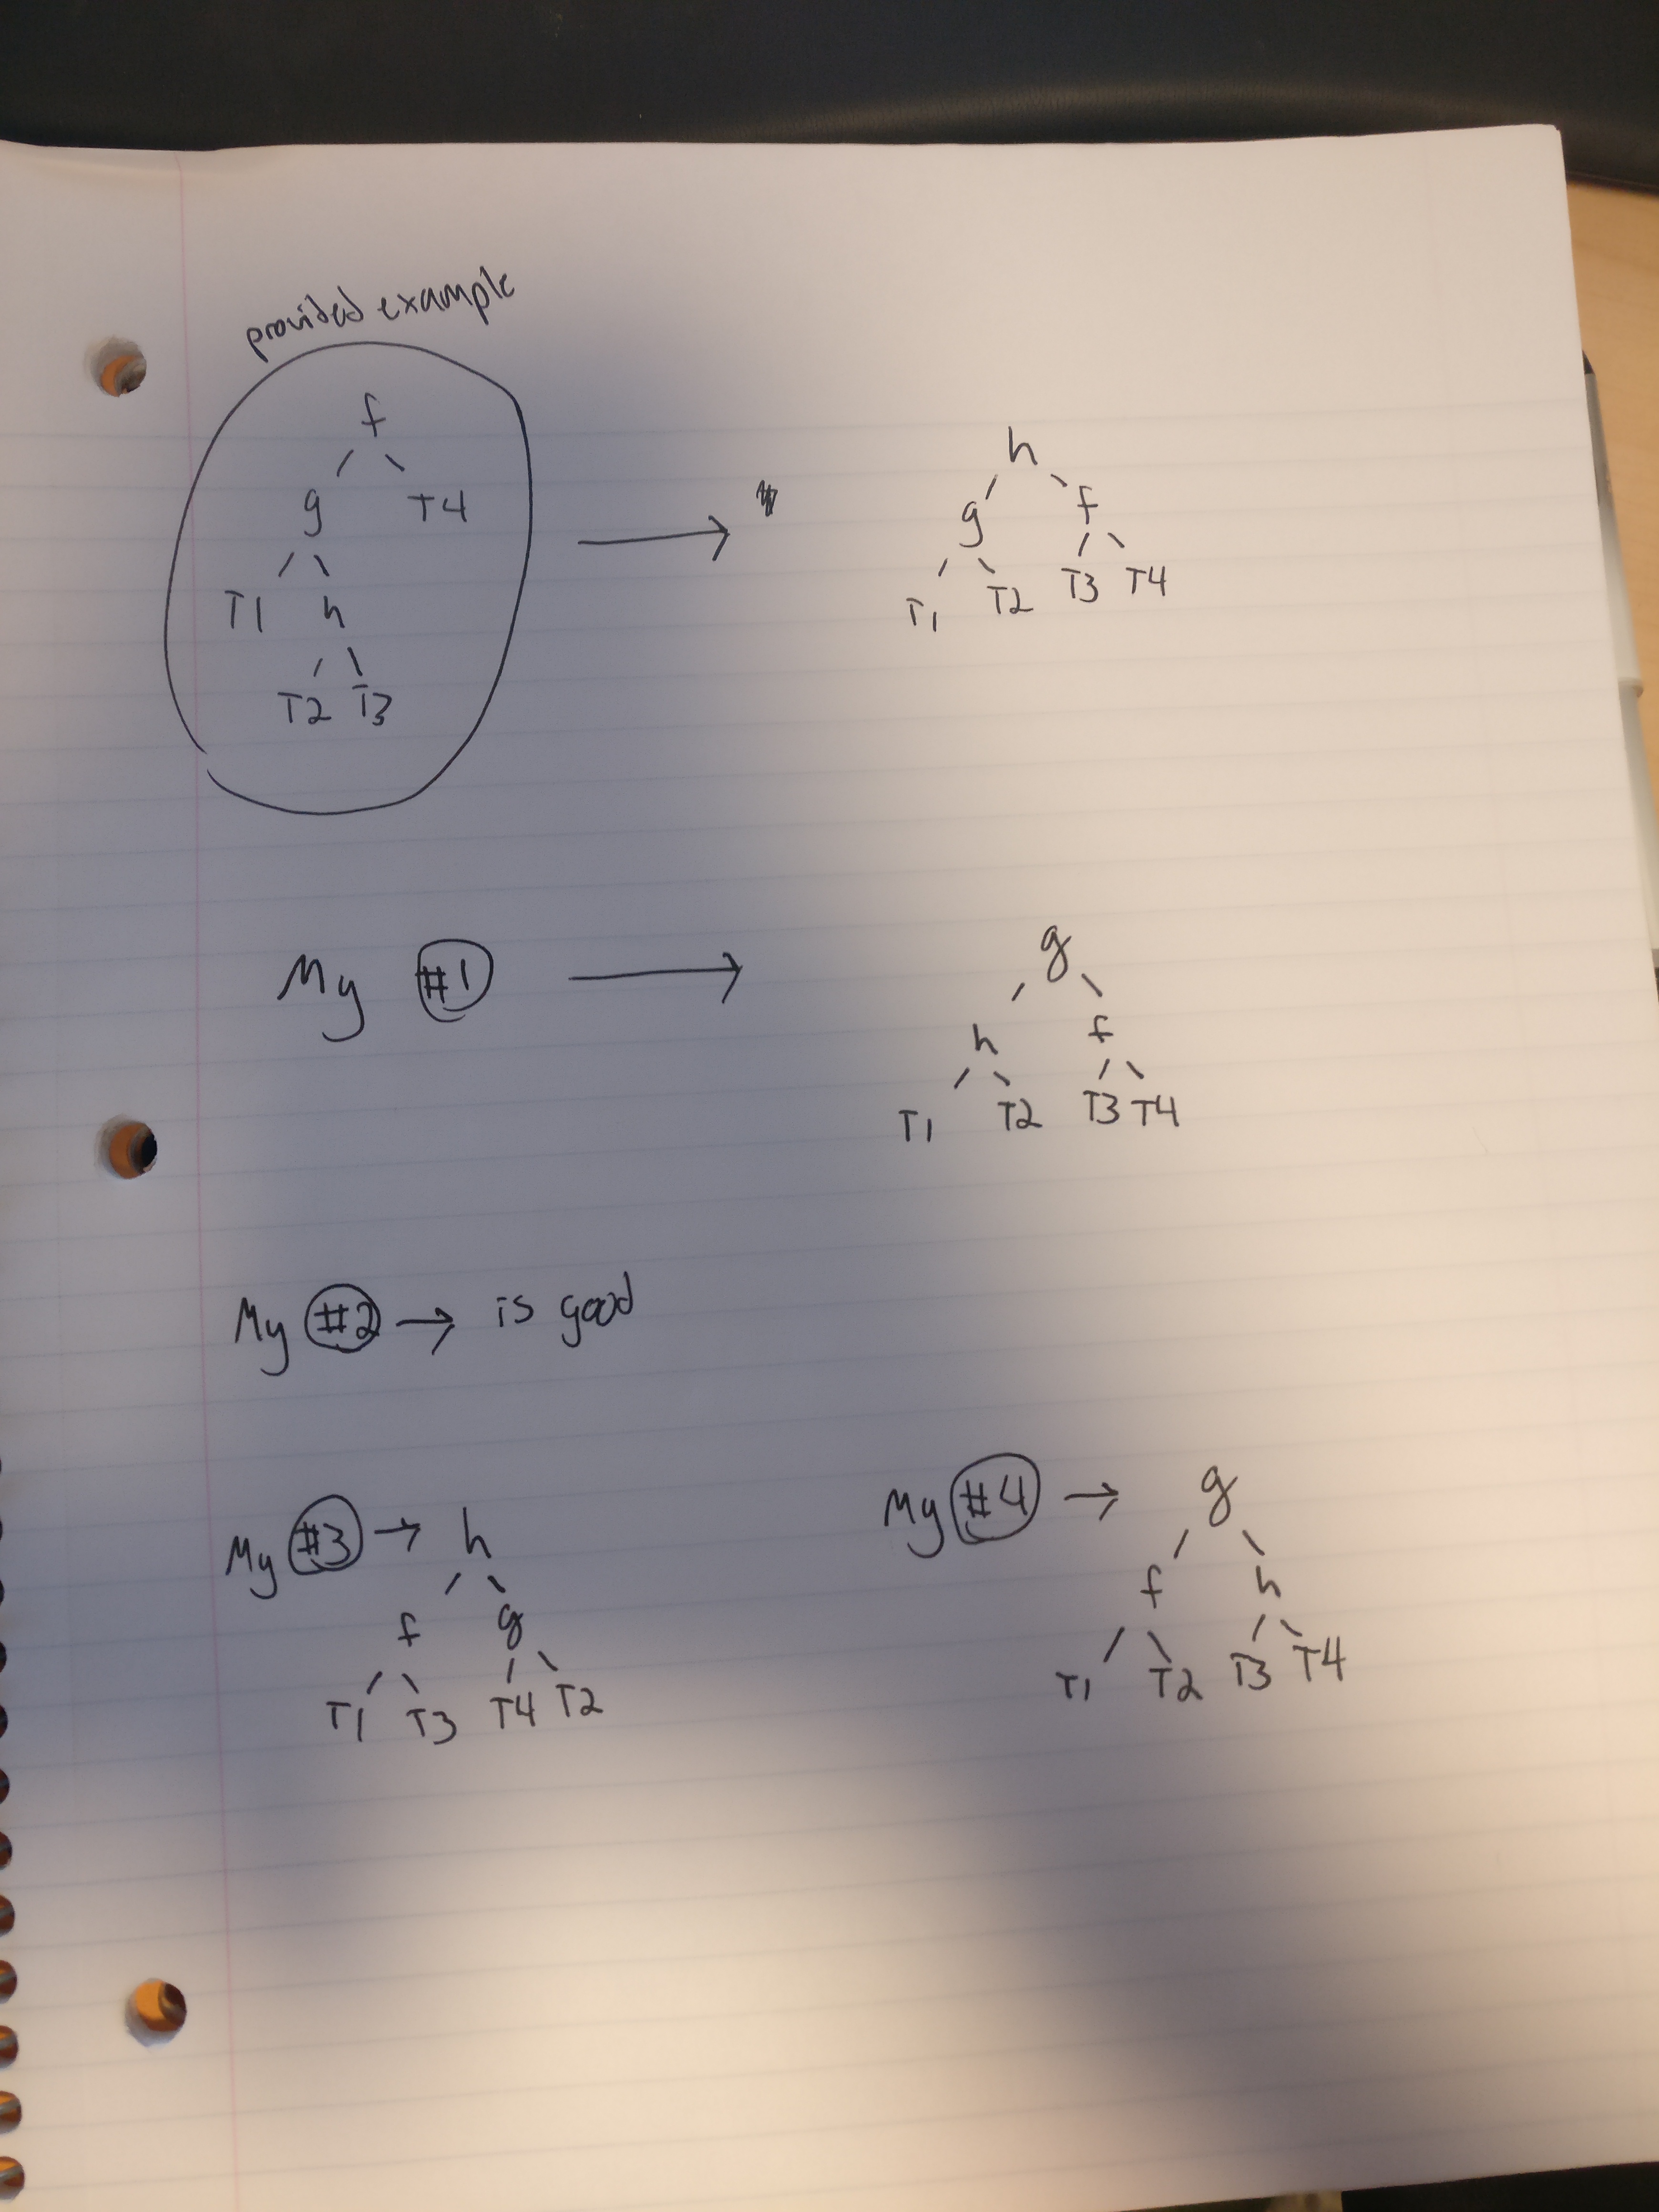 provided example
f
g T4
T1 h
T2 T3
h
g f
T1 T2 T3 T4
My #1
g
h f
T1 T2 T3 T4
My #2 → is good
My #3 → h
f g
T1 T3 T4 T2
My #4 → g
f h
T1 T2 T3 T4